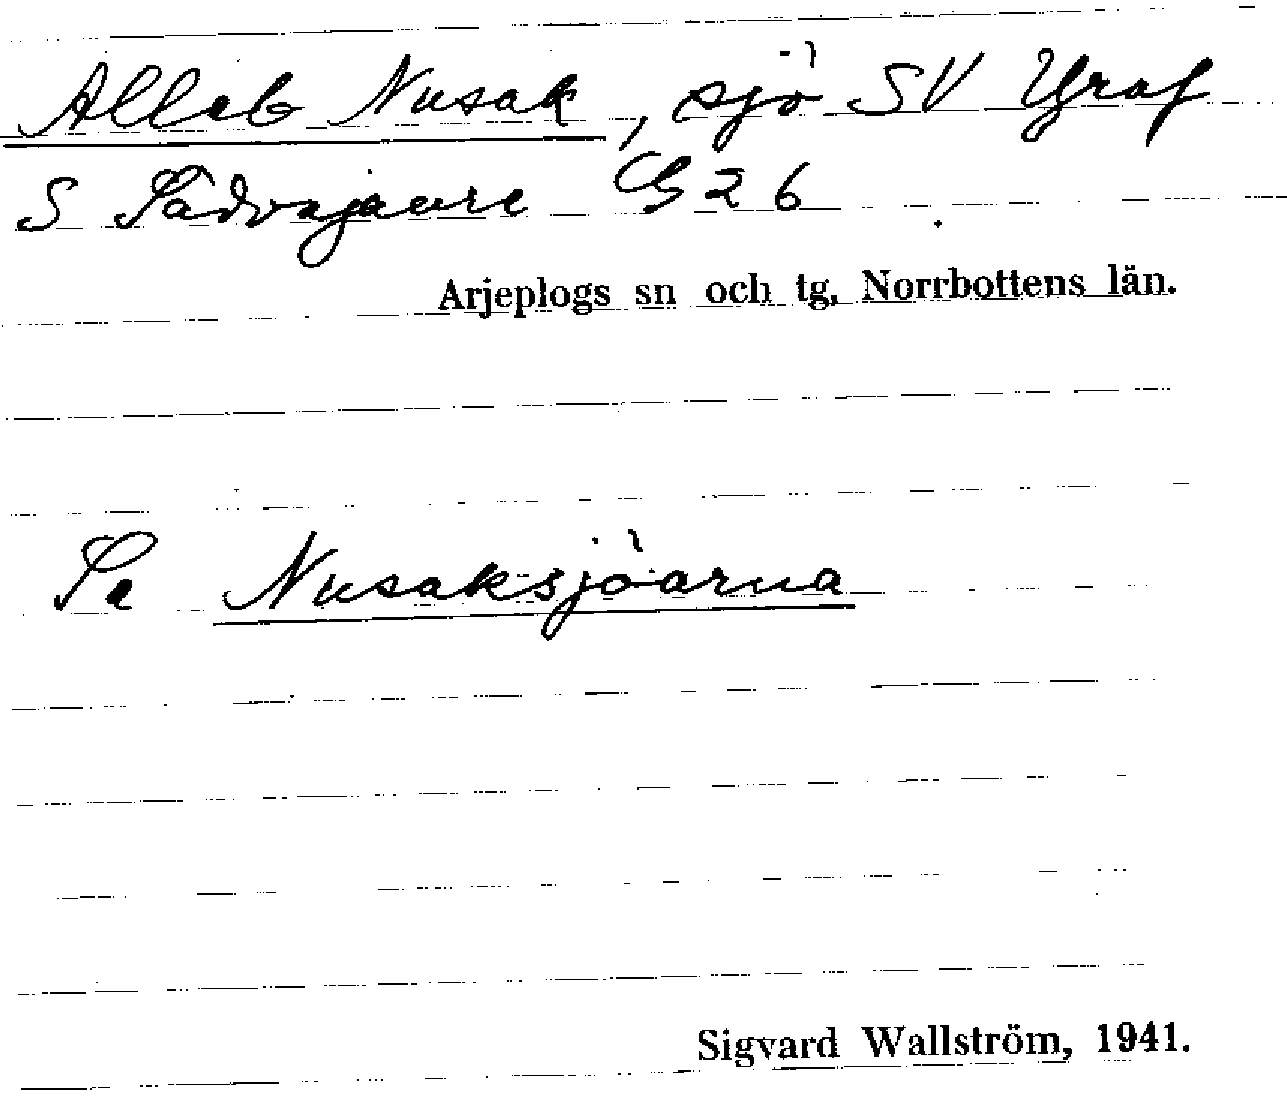 Alleb Nusak, sjö SV Yraf
S Sädvajaure G 26
Arjeplogs sn och tg, Norrbottens län.
Se Nusaksjöarna
Sigvard Wallström, 1941.